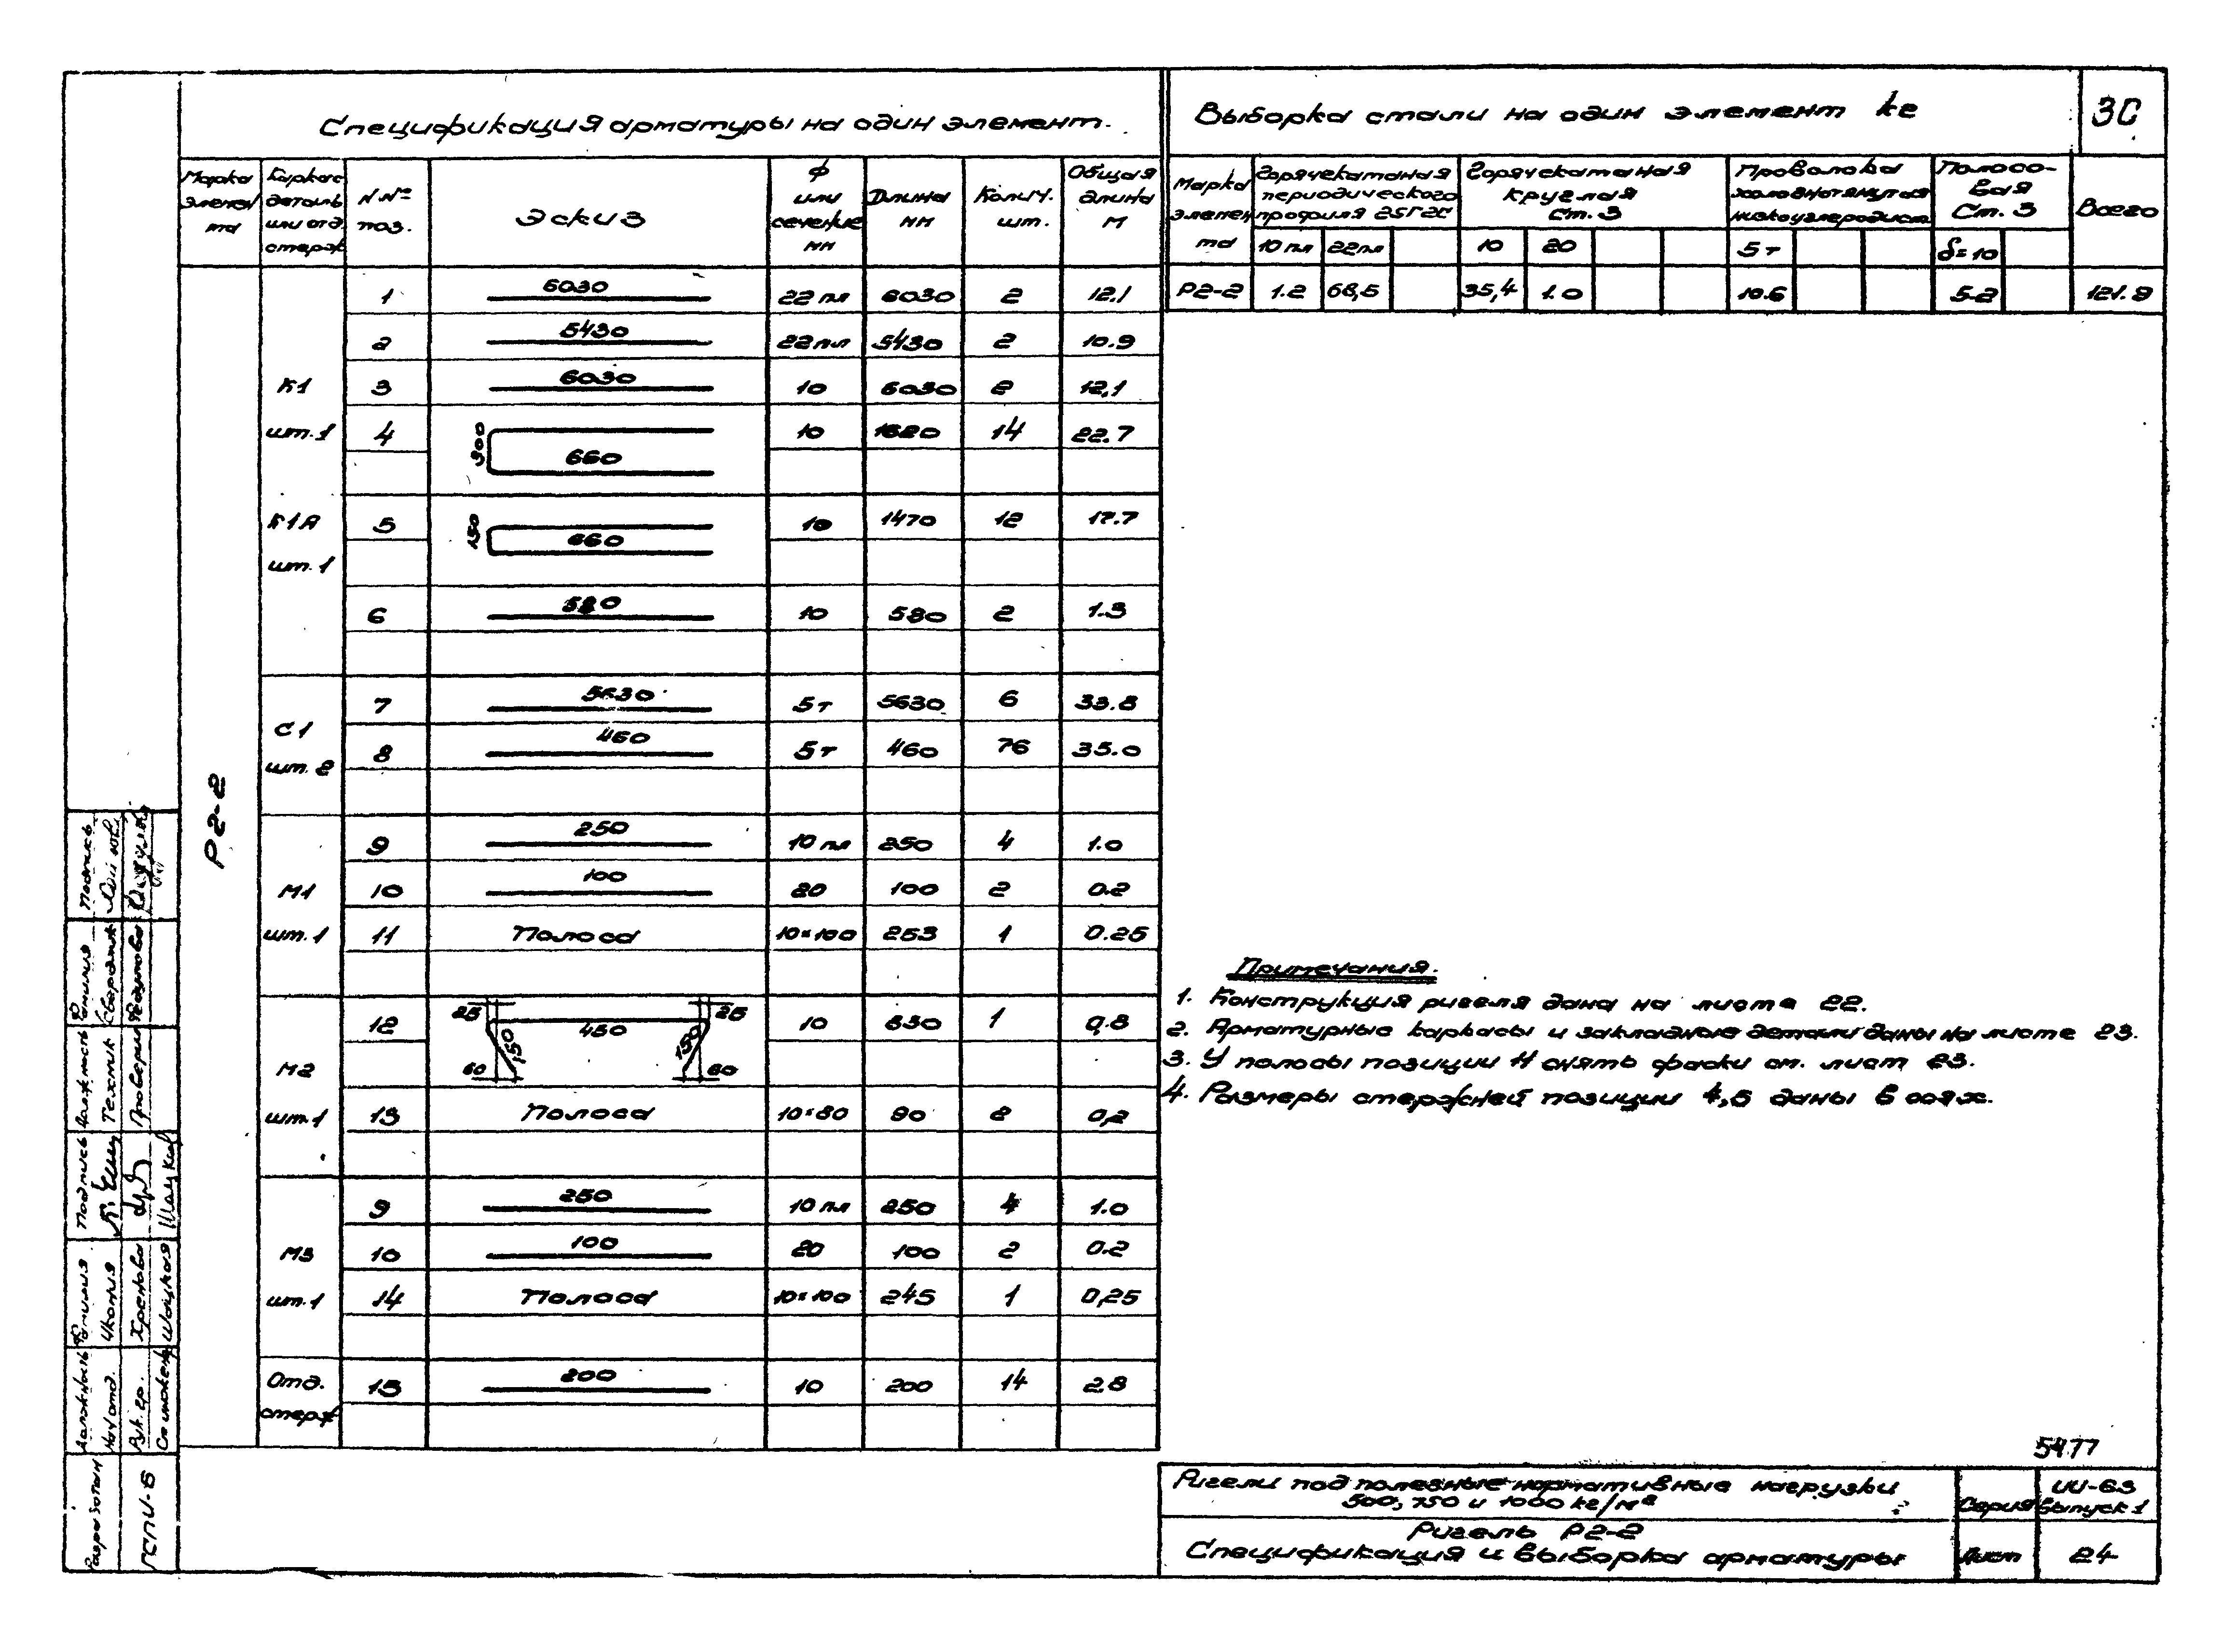 Спецификация арматуры на один элемент.
Марка элемен та | Каркас деталь или отд. стерж. | N.Nº поз. | Эскиз | ф или сечение мм | Длина мм | Колич. шт. | Общая длина м
Р2-2
К1 шт.1
1 | 6030 | 22пл | 6030 | 2 | 12,1
2 | 5430 | 22пл | 5430 | 2 | 10.9
3 | 6030 | 10 | 6030 | 2 | 12,1
4 | 300 660 | 10 | 1620 | 14 | 22.7
К1А шт.1
5 | 150 660 | 10 | 1470 | 12 | 17.7
6 | 580 | 10 | 580 | 2 | 1.3
С1 шт.2
7 | 5630 | 5т | 5630 | 6 | 33.8
8 | 460 | 5т | 460 | 76 | 35.0
М1 шт.1
9 | 250 | 10пл | 250 | 4 | 1.0
10 | 100 | 20 | 100 | 2 | 0.2
11 | Полоса | 10×100 | 253 | 1 | 0.25
М2 шт.1
12 | 25 450 25 150 150 60 60 | 10 | 830 | 1 | 0,8
13 | Полоса | 10×80 | 90 | 2 | 0,2
М3 шт.1
9 | 250 | 10пл | 250 | 4 | 1.0
10 | 100 | 20 | 100 | 2 | 0.2
14 | Полоса | 10×100 | 245 | 1 | 0,25
Отд. стерж
15 | 200 | 10 | 200 | 14 | 2.8
Выборка стали на один элемент кг
30
Марка элемен та | Горячекатаная периодического профиля 25Г2С | Горячекатаная круглая Ст. 3 | Проволока холоднотянутая низкоуглеродист. | Полосо-вая Ст. 3 | Всего
10пл | 22пл | 10 | 20 | 5т | δ=10
Р2-2 | 1.2 | 68,5 | 35,4 | 1.0 | 10.6 | 5.2 | 121.9
Примечания.
1. Конструкция ригеля дана на листе 22.
2. Арматурные каркасы и закладные детали даны на листе 23.
3. У полосы позиции 11 снять фаски см. лист 23.
4. Размеры стержней позиции 4,5 даны в осях.
5477
Ригели под полезные нормативные нагрузки
500, 750 и 1000 кг/м²
Серия
ИИ-63
Выпуск 1
Ригель Р2-2
Спецификация и выборка арматуры
Лист
24
Должность Фамилия Подпись Должность Фамилия Подпись
Нач отд.
Техник
Рук. гр. Хренова
Проверил
Ст инжен. Шацкая
Разработан
ГСПИ-6